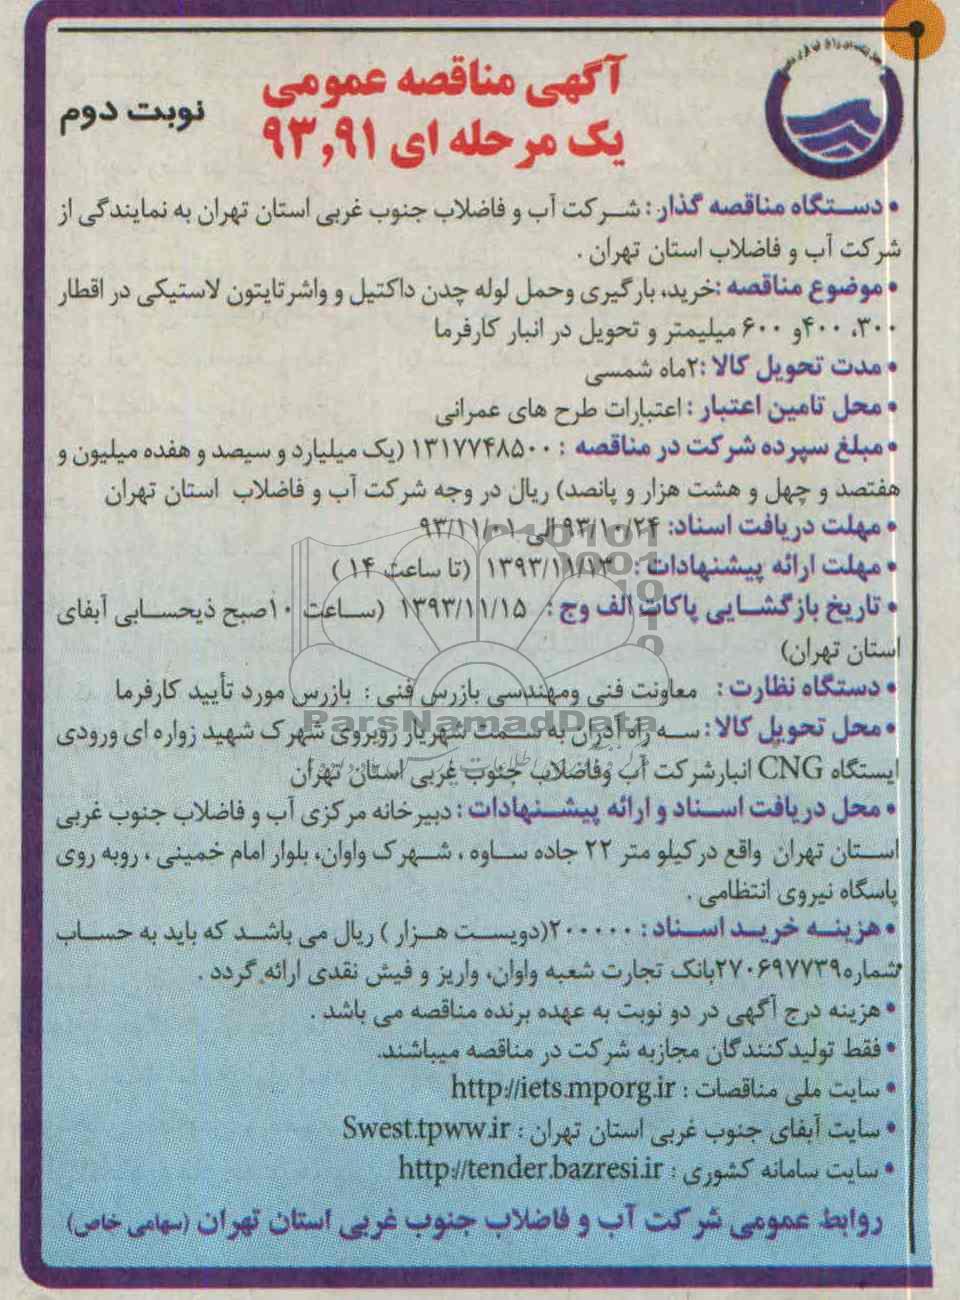 آگهی مناقصه عمومی
یک مرحله ای ۹۳,۹۱
نوبت دوم
• دستگاه مناقصه گذار : شرکت آب و فاضلاب جنوب غربی استان تهران به نمایندگی از
شرکت آب و فاضلاب استان تهران .
• موضوع مناقصه :خرید، بارگیری وحمل لوله چدن داکتیل و واشرتایتون لاستیکی در اقطار
۳۰۰، ۴۰۰و ۶۰۰ میلیمتر و تحویل در انبار کارفرما
• مدت تحویل کالا :۲ماه شمسی
• محل تامین اعتبار : اعتبارات طرح های عمرانی
• مبلغ سپرده شرکت در مناقصه : ۱۳۱۷۷۴۸۵۰۰ (یک میلیارد و سیصد و هفده میلیون و
هفتصد و چهل و هشت هزار و پانصد) ریال در وجه شرکت آب و فاضلاب استان تهران
• مهلت دریافت اسناد: ۹۳/۱۰/۲۴ الی ۹۳/۱۱/۰۱
• مهلت ارائه پیشنهادات : ۱۳۹۳/۱۱/۱۳ (تا ساعت ۱۴ )
• تاریخ بازگشایی پاکات الف وج : ۱۳۹۳/۱۱/۱۵ (ساعت ۱۰صبح ذیحسابی آبفای
استان تهران)
• دستگاه نظارت : معاونت فنی ومهندسی بازرس فنی : بازرس مورد تأیید کارفرما
ParsNamadData
• محل تحویل کالا : سه راه آدران به سمت شهریار روبروی شهرک شهید زواره ای ورودی
ایستگاه CNG انبارشرکت آب وفاضلاب جنوب غربی استان تهران
• محل دریافت اسناد و ارائه پیشنهادات : دبیرخانه مرکزی آب و فاضلاب جنوب غربی
استان تهران واقع درکیلو متر ۲۲ جاده ساوه ، شهرک واوان، بلوار امام خمینی ، روبه روی
پاسگاه نیروی انتظامی .
• هزینه خرید اسناد : ۲۰۰۰۰۰(دویست هزار ) ریال می باشد که باید به حساب
شماره۲۷۰۶۹۷۷۳۹بانک تجارت شعبه واوان، واریز و فیش نقدی ارائه گردد .
• هزینه درج آگهی در دو نوبت به عهده برنده مناقصه می باشد .
• فقط تولیدکنندگان مجازبه شرکت در مناقصه میباشند.
• سایت ملی مناقصات : http://iets.mporg.ir
• سایت آبفای جنوب غربی استان تهران : Swest.tpww.ir
• سایت سامانه کشوری : http://tender.bazresi.ir
روابط عمومی شرکت آب و فاضلاب جنوب غربی استان تهران (سهامی خاص)